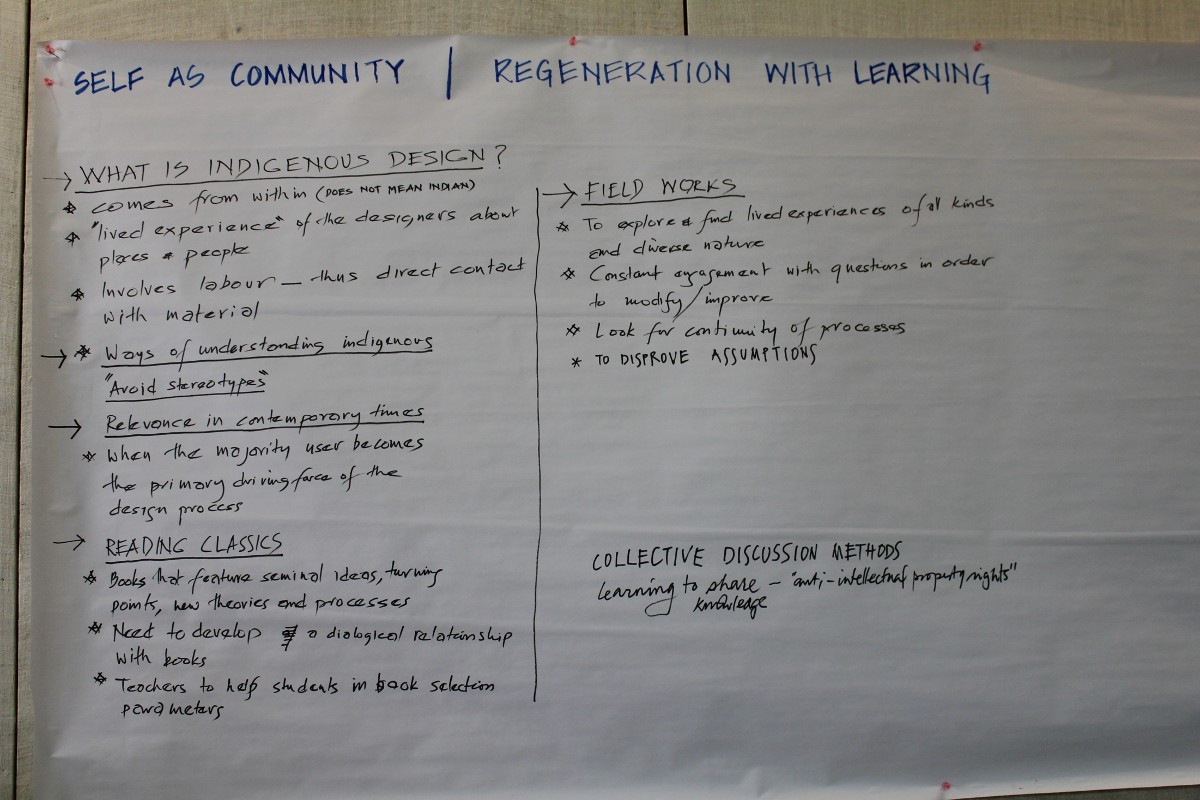 SELF AS COMMUNITY | REGENERATION WITH LEARNING
→ WHAT IS INDIGENOUS DESIGN?
* comes from within (DOES NOT MEAN INDIAN)
* "lived experience" of the designers about
places & people
* Involves labour — thus direct contact
with material
→ * Ways of understanding indigenous
"Avoid stereotypes"
→ Relevance in contemporary times
* When the majority user becomes
the primary driving force of the
design process
→ READING CLASSICS
* Books that feature seminal ideas, turning
points, new theories and processes
* Need to develop a dialogical relationship
with books
* Teachers to help students in book selection
parameters
→ FIELD WORKS
* To explore & find lived experiences of all kinds
and diverse nature
* Constant engagement with questions in order
to modify/improve
* Look for continuity of processes
* TO DISPROVE ASSUMPTIONS
COLLECTIVE DISCUSSION METHODS
Learning to share — "anti-intellectual property rights"
knowledge